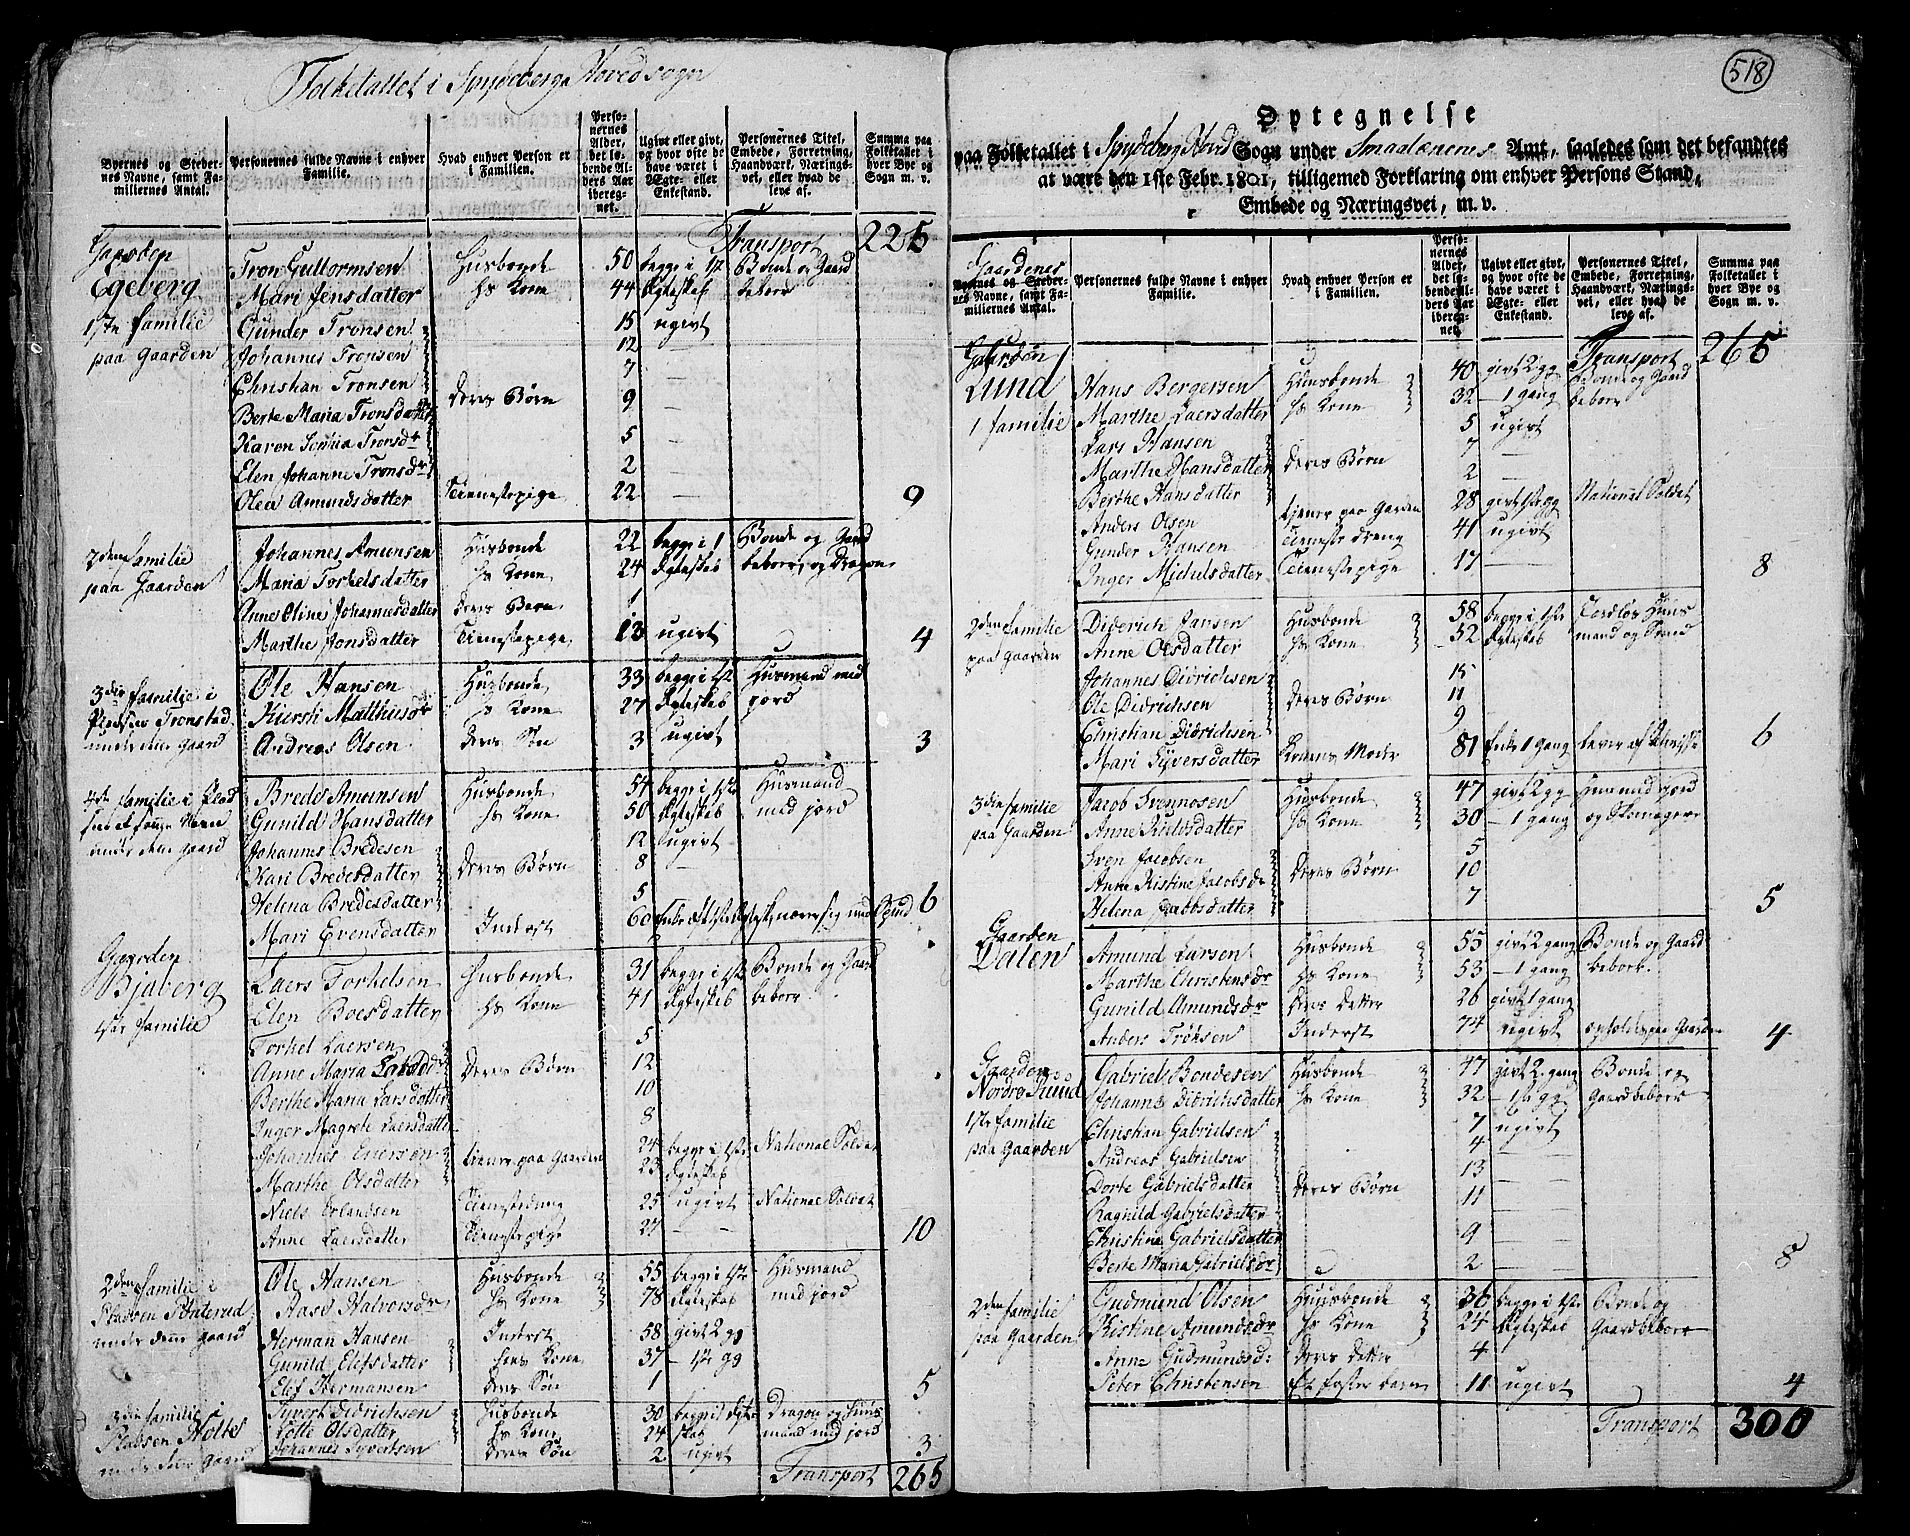 Folketallet i Spydeberga Hovedsogn
Byernes og Stedernes Navne, samt Familiernes Antal.
Personernes fulde Navne i enhver Familie.
Hvad enhver Person er i Familien.
Personernes Alder, det løbende Alders Aar iberegnet.
Ugivt eller givt, og hvor ofte de have været i Ægte- eller Enkestand.
Personernes Titel, Embede, Forretning, Haandværk, Nærings-vei, eller hvad de leve af.
Summa paa Folketallet i hver Bye og Sogn m. v.
Transport 225
Gaarden Tron Guttormsen Husbonde 50 begge i 1ste Bonde og Gaard
Egeberg Mari Jensdatter hs Kone 44 Ægteskab beboer
1ste familie Gunder Tronsen 15 ugivt
paa Gaarden Johannes Tronsen 12 —
Christian Tronsen 7 —
Berte Maria Tronsdatter deres Børn 9 —
Karen Sophia Tronsdr 5 —
Elen Johanne Tronsdr 2 —
Olea Amundsdatter Tienestepige 22 — 9
2den familie Johannes Amunsen Husbonde 22 begge i 1 Bonde og Gaard
paa Gaarden Maria Torkelsdatter hs Kone 24 Ægteskab beboer, og Dragon
Anne Oline Johannesdatter deres Barn 1
Marthe Jonsdatter Tienestepige 13 ugivt 4
3die familie i Ole Hansen Husbonde 33 begge i 1ste Husmand med
Pladsen Tronstad Kiersti Matthiesdr hs Kone 27 Ægteskab jord
under denne gaard Andreas Olsen deres Søn 3 ugivt 3
4de familie i Plad Brede Amunsen Husbonde 54 begge i 1ste Husmand
Gunild Hansdatter hs Kone 50 Ægteskab med jord
under denne gaard Johannes Bredesen 12 ugivt
Kari Bredesdatter deres Børn 8 —
Helena Bredesdatter 5
Mari Evensdatter Inderst 60 6
Gaarden Laers Torkelsen Husbonde 31 begge i 1ste Bonde og Gaard
Bjaberg Elen Boesdatter hs Kone 41 Ægteskab beboer
1ste familie Torkel Laersen 5
Anne Maria deres Børn 12
Berthe Maria Larsdatter 10
Inger Magrete Laersdatter 8
Johannes Enersen tiener paa Gaarden 24 begge i 1ste National Soldat
Marthe Olsdatter 23 Ægteskab
Niels Erlandsen Tienestedreng 25 ugivt National Soldat
Anne Laersdatter Tienestepige 27 — 10
2den familie i Ole Hansen Husbonde 55 begge i 1ste Husmand
Pladsen Aase Halvorsdr hs Kone 78 Ægteskab med jord
under denne gaard Herman Hansen Inderst 58 givt 2 gg
Gunild Elefsdatter hans Kone 37 — 1ste gg
Elef Hermansen deres Søn 1 5
3die familie i Syvert Didrichsen Husbonde 30 begge i 1 Ægte- Dragon og Huus
Pladsen Holte Lotte Olsdatter hs Kone 24 skab mand med jord
under denne gaard Johannes Syvertsen deres Søn 2 ugivt 3
Transport 265
518
Optegnelse
paa Folketallet i Spydeberg Hoved Sogn under Smaalænenes Amt, saaledes som det befandtes
at være den 1ste Febr. 1801, tilligemed Forklaring om enhver Persons Stand,
Embede og Næringsvei, m. v.
Gaardenes
Byernes og Stedernes Navne, samt Familiernes Antal.
Personernes fulde Navne i enhver Familie.
Hvad enhver Person er i Familien.
Personernes Alder, det løbende Alders Aar iberegnet.
Ugivt eller givt, og hvor ofte de have været i Ægte- eller Enkestand.
Personernes Titel, Embede, Forretning, Haandværk, Nærings-vei, eller hvad de leve af.
Summa paa Folketallet i hver Bye og Sogn m. v.
Transport 265
Gaarden Hans Bergersen Huusbonde 40 givt 2 gg Bonde og Gaard
Lund Marthe Laersdatter hs Kone 32 — 1 gang beboer
1 familie Lars Hansen 5 ugivt
Marthe Hansdatter deres Børn 7 —
Berthe Hansdatter 2 —
Anders Olsen tiener paa Garden 28 givt 1ste gg National Soldat
Gunder Hansen Tieneste dreng 41 ugivt
Inger Michelsdatter Tienestepige 17 — 8
2den familie Diderich Jansen Husbonde 58 begge i 1ste Jordløs Huus
paa Gaarden Anne Olsdatter hs Kone 52 Ægteskab mand og
Johannes Didrichsen 15
Ole Didrichsen deres Børn 11
Christian Didrichsen 9
Mari Syversdatter Konens Moder 81 Enke 1 gang lever af 6
3die familie Jacob Svennosen Husbonde 47 givt 2 gg Huus med jord
paa Gaarden Anne Nielsdatter hs Kone 30 — 1 gang og Skomager
Sven Jacobsen 5
Anne Kistine Jacobsdr deres Børn 10
Helena Jacobsdatter 7 5
Gaarden Amund Larsen Husbonde 55 givt 2 gang Bonde og Gaard
Dalen Marthe Christensdr hs Kone 53 — 1 gang beboer
Gunild Amundsdr deres Datter 26 givt 1 gang
Anders Trønsen Inderst 74 ugivt opholdes paa Gaarden 4
Gaarden Gabriel Bondesen Husbonde 47 givt 2 gang Bonde og
Nordre Johanne Didrichsdatter hs Kone 32 — 1ste gg Gaardbeboer
1ste familie Christian Gabrielsen 7 ugivt
paa Gaarden Andreas Gabrielsen 4 —
Dorte Gabrielsdatter deres Børn 13 —
Ragnild Gabrielsdatter 11 —
Christine Gabrielsdatter 9 —
Berte Maria Gabrielsdr 2 — 8
2den familie Gudmund Olsen Huusbonde 36 begge i 1ste Bonde og
paa Gaarden Kistine Amundsdr hs Kone 24 Ægteskab Gaardbeboer
Anne Gudmundsd: deres Datter 4
Peter Christensen Et foster barn 11 ugivt 4
Transport 300